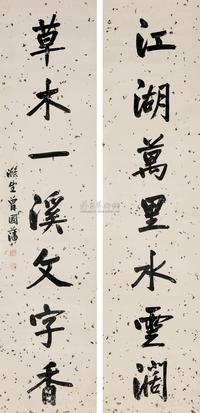 江湖萬里水雲闊
草木一溪文字香
滌生曾國藩